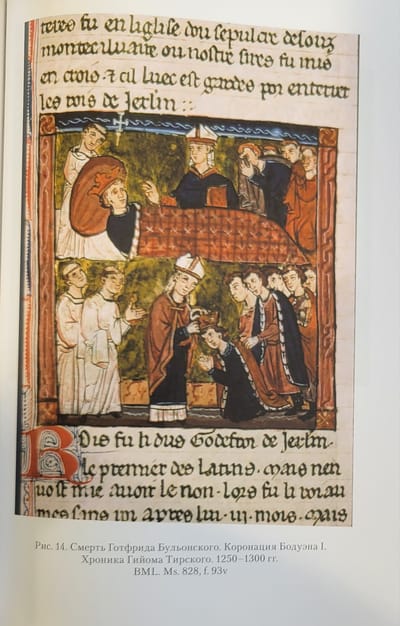 teres fu en liglise dou sepulcre desouz
monte caluaire ou nostre sires fu mis
en crois. et cil luec est gardes por enterrer
les rois de Jerlm
Rois fu li dus Godefroi de Jerlm.
le premier des latins. mais nen
uost mie auoir le non. lors fu li roiau
mes sans roi apres lui. iii. mois. mais
Рис. 14. Смерть Готфрида Бульонского. Коронация Бодуэна I.
Хроника Гийома Тирского. 1250–1300 гг.
BML. Ms. 828, f. 93v